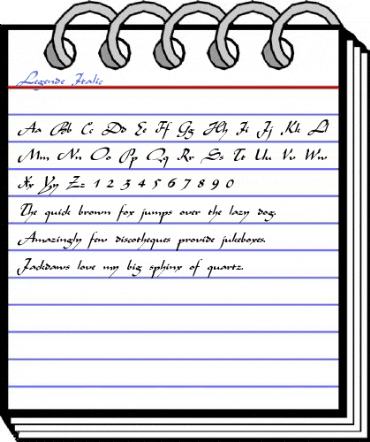 Legende Italic
Aa Bb Cc Dd Ee Ff Gg Hh Ii Jj Kk Ll
Mm Nn Oo Pp Qq Rr Ss Tt Uu Vv Ww
Xx Yy Zz 1 2 3 4 5 6 7 8 9 0
The quick brown fox jumps over the lazy dog.
Amazingly few discotheques provide jukeboxes.
Jackdaws love my big sphinx of quartz.